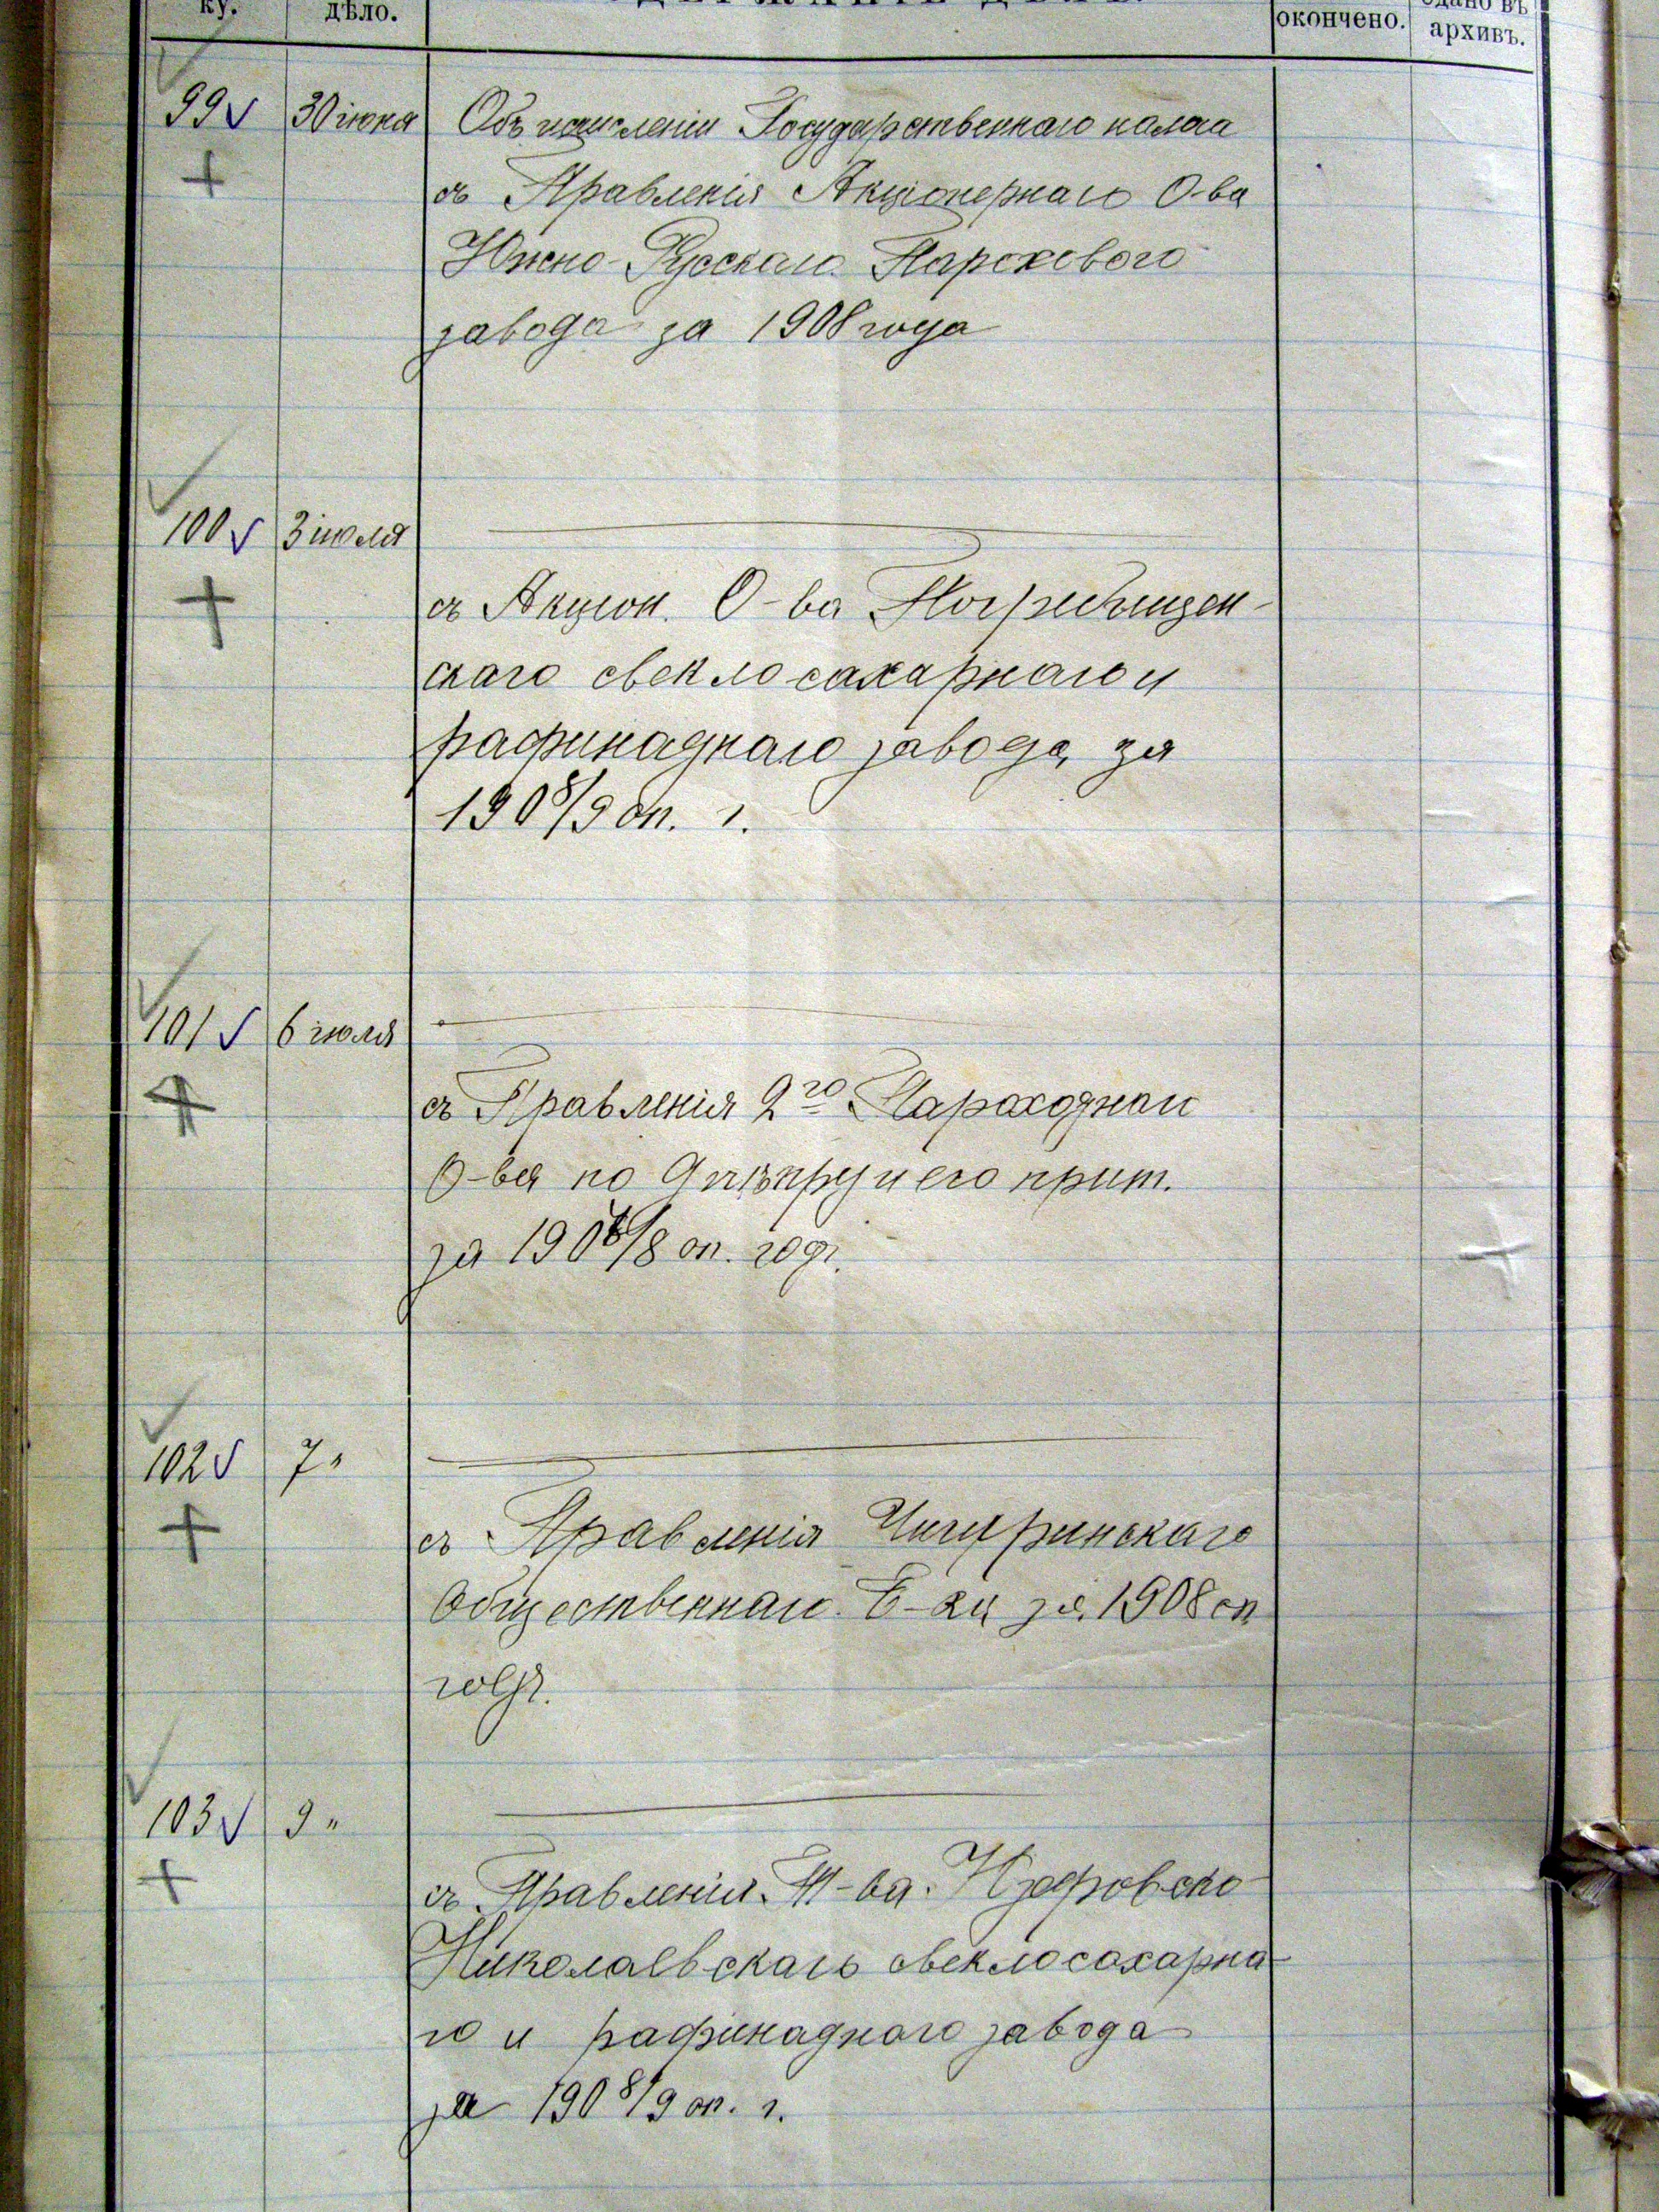 ку.
дѣло.
СОДЕРЖАНІЕ ДѢЛЪ.
окончено.
Сдано въ
архивъ.
99 30 іюня Объ исчисленіи Государственнаго налога
съ Правленія Акціонернаго О-ва
Южно-Русскаго
завода за 1908 года
100 3 іюля
съ Акціон. О-ва Погребищен-
скаго свеклосахарнаго и
рафинаднаго завода за
1908/9 оп. г.
101 6 іюля
съ Правленія 2го Пароходнаго
О-ва по Днѣпру и его прит.
за 190 /8 оп. годъ.
102 7 "
съ Правленія Чигиринскаго
Общественнаго Б-ка за 1908 оп
годъ.
103 9 "
съ Правленія Т-ва
Николаевскаго свеклосахарна-
го и рафинаднаго завода
за 1908/9 оп. г.